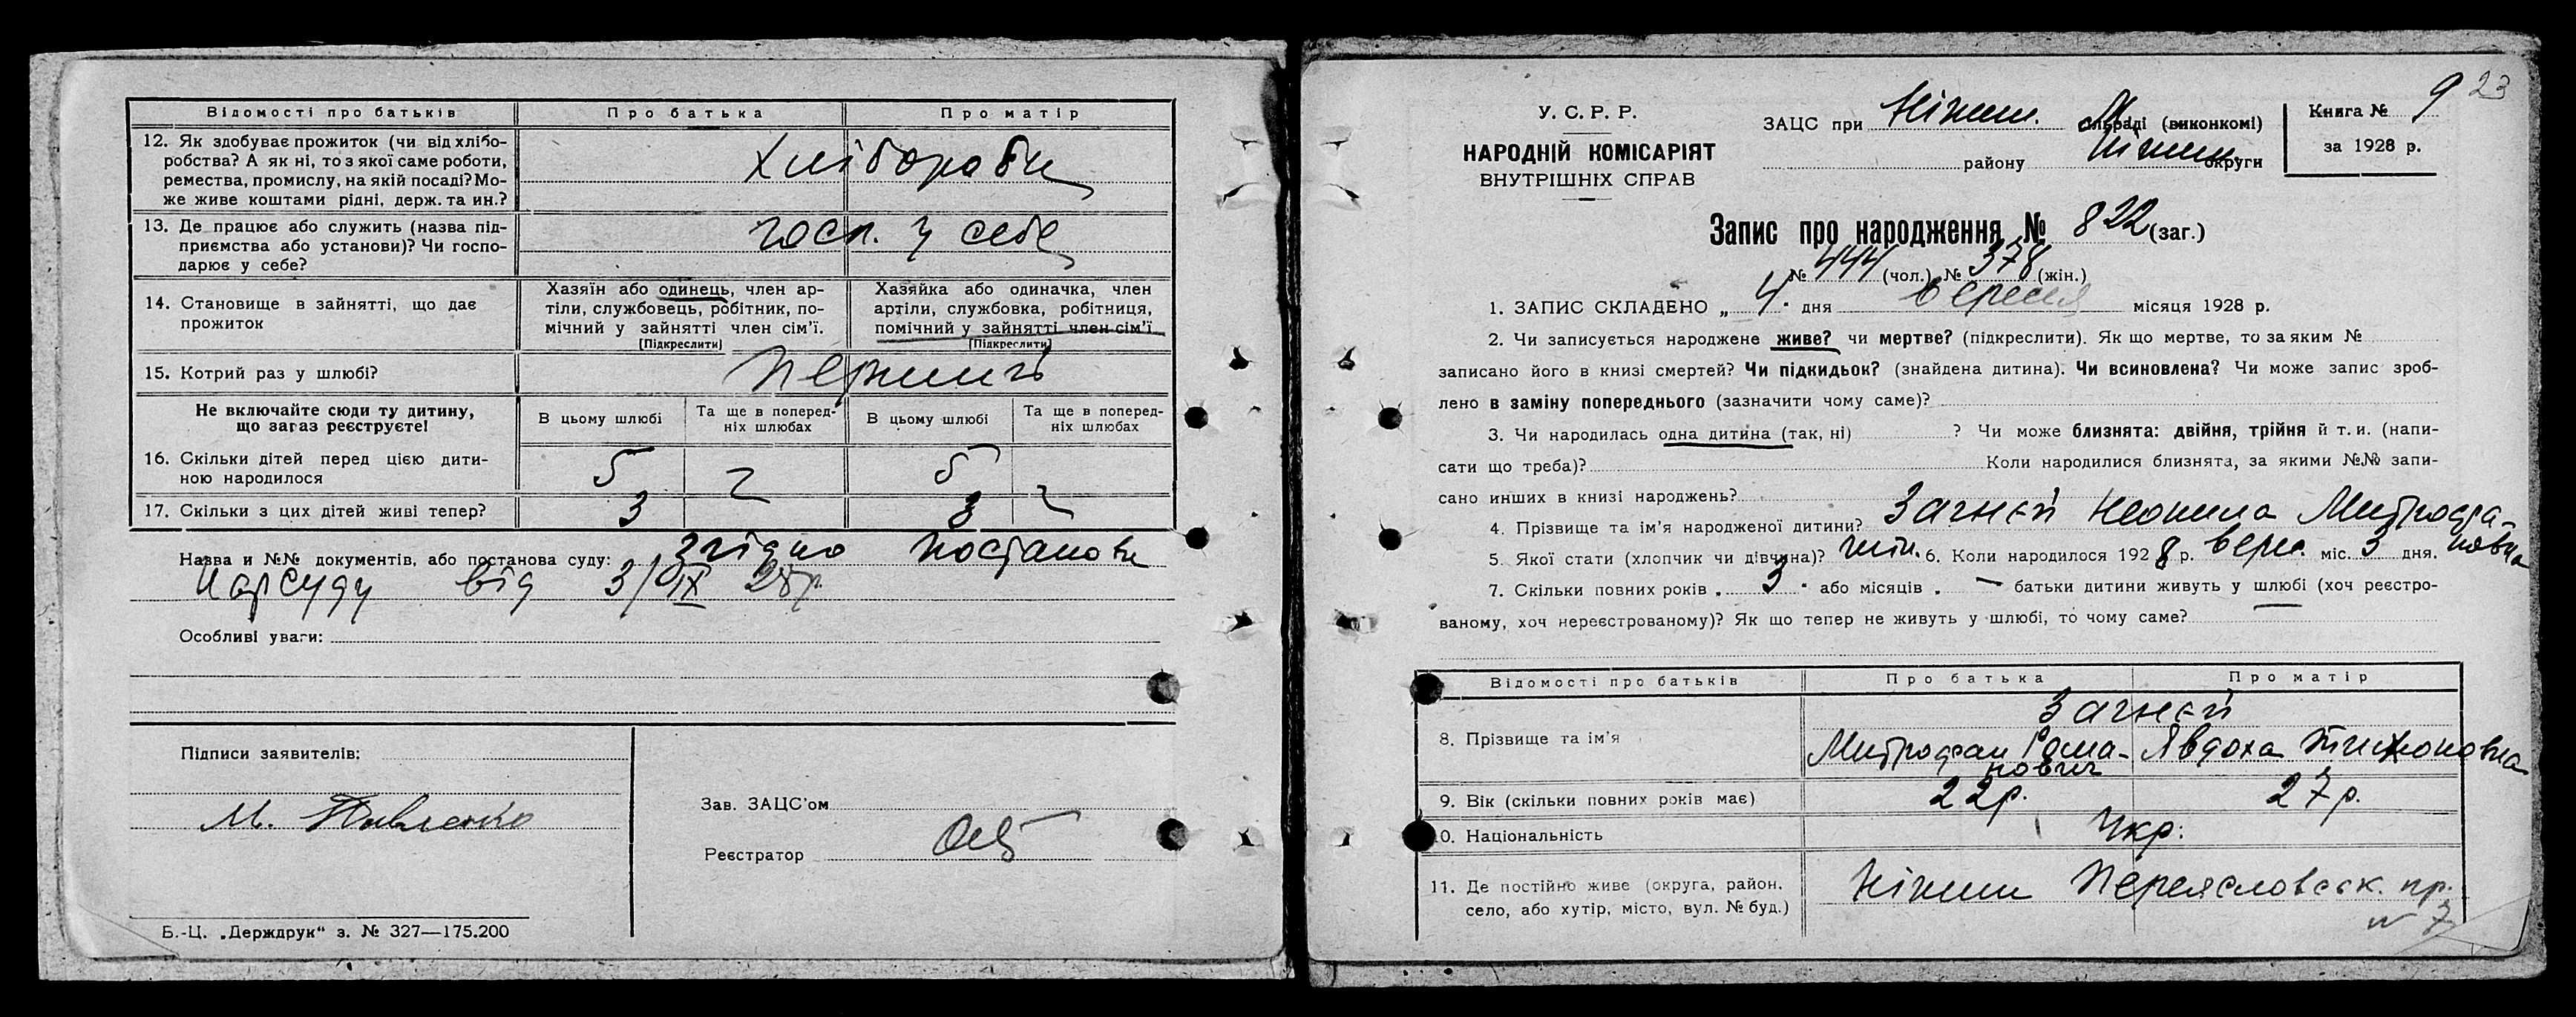 Відомості про батьків Про батька Про матір
12. Як здобуває прожиток (чи від хлібо-
робства? А як ні, то з якої саме роботи,
ремества, промислу, на якій посаді? Мо-
же живе коштами рідні, держ. та ин.?
Хлібороби
13. Де працює або служить (назва під-
приємства або установи)? Чи госпо-
дарює у себе?
госп. у себе
14. Становище в зайнятті, що дає
прожиток
Хазяїн або одинець, член ар-
тіли, службовець, робітник, по-
мічний у зайнятті член сім'ї.
(Підкреслити)
Хазяйка або одиначка, член
артіли, службовка, робітниця,
помічний у зайнятті член сім'ї
(Підкреслити)
15. Котрий раз у шлюбі?
Не включайте сюди ту дитину,
що загаз реєструєте!
В цьому шлюбі
Та ще в поперед-
ніх шлюбах
В цьому шлюбі
Та ще в поперед-
ніх шлюбах
16. Скільки дітей перед цією дити-
ною народилося
5 5
17. Скільки з цих дітей живі тепер? 3 3
Назва и №№ документів, або постанова суду: Згідно постанови
Нарсуду від 3/IX 28р.
Особливі уваги:
Підписи заявителів:
М. Павленко
Зав. ЗАЦС'ом
Реєстратор
Б.-Ц. „Держдрук" з. № 327—175.200
23
У. С. Р. Р.
НАРОДНІЙ КОМІСАРІЯТ
ВНУТРІШНІХ СПРАВ
ЗАЦС при Ніжин. сільраді (виконкомі)
району Ніжин. округи
Книга № 9
за 1928 р.
Запис про народження № 822 (заг.)
№ 444 (чол.) № 378 (жін.)
1. ЗАПИС СКЛАДЕНО „4" дня вересня місяця 1928 р.
2. Чи записується народжене живе? чи мертве? (підкреслити). Як що мертве, то за яким №
записано його в книзі смертей? Чи підкидьок? (знайдена дитина). Чи всиновлена? Чи може запис зроб-
лено в заміну попереднього (зазначити чому саме)?
3. Чи народилась одна дитина (так, ні) ? Чи може близнята: двійня, трійня й т. и. (напи-
сати що треба)? Коли народилися близнята, за якими №№ запи-
сано инших в книзі народжень?
4. Прізвище та ім'я народженої дитини? Загнєй Неонила Митрофа-
новна
5. Якої стати (хлопчик чи дівчина)? жін. 6. Коли народилося 1928 р. верес. міс. 3 дня.
7. Скільки повних років „ 3 " або місяців „ — батьки дитини живуть у шлюбі (хоч реєстро-
ваному, хоч нереєстрованому)? Як що тепер не живуть у шлюбі, то чому саме?
Відомості про батьків Про батька Про матір
8. Прізвище та ім'я
Загнєй
Митрофан Рома-
нович
Явдоха Тихоновна
9. Вік (скільки повних років має) 22р. 27р.
10. Національність Укр:
11. Де постійно живе (округа, район.
село, або хутір, місто, вул. № буд.)
Ніжин Переясловськ. пр.
№ 7